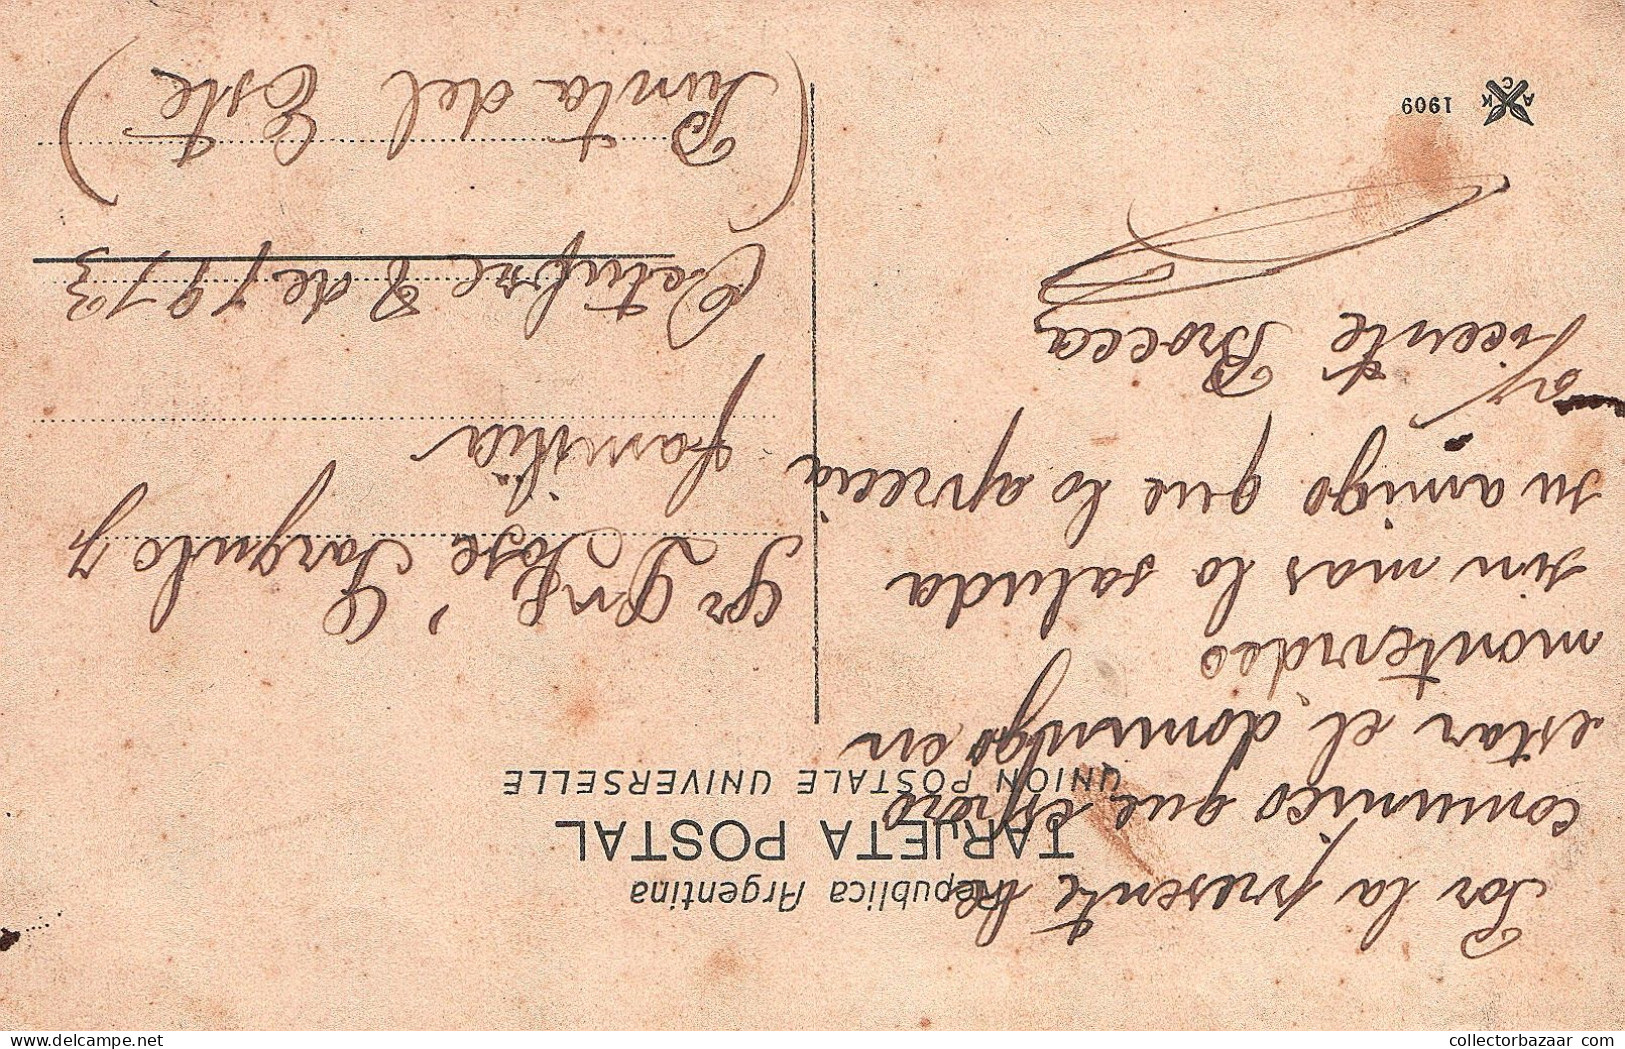 Republica Argentina
TARJETA POSTAL
UNION POSTALE UNIVERSELLE
Por la presente le
comunico que espero
estar el domingo en
montevideo
sin mas lo saluda
su amigo que lo aprecia
Vicente Brocca
A C K 1909
Sr Dn José
familia
Octubre 8 de 1913
(Punta del Este)
delcampe.net
collectorbazaar.com